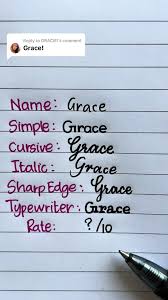 Reply to GRACIE!'s comment
Grace!
Name: Grace
Simple: Grace
Cursive: Grace
Italic: Grace
Sharp Edge: Grace
Typewriter: Grace
Rate: ?/10